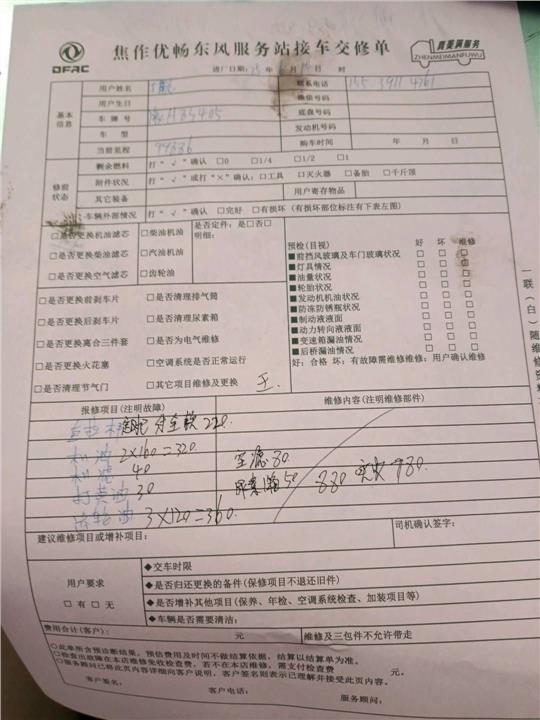 DFAC
焦作优畅东风服务站接车交修单
真美满服务
ZHENMEIMANFUWU
进厂日期: 年 月 日 时
基本信息
用户姓名 联系电话 155 3911 4761
用户生日 微信号码
车牌号 底盘号码
车型 发动机号码
当前里程 99836 购车时间 年 月 日
修前状态
剩余燃料 打“√”确认 □0 □1/4 □1/2 □1
附件状况 打“√”或打“×”确认:□工具 □灭火器 □备胎 □千斤顶
其它装备 用户寄存物品
车辆外部情况 打“√”确认 □完好 □有损坏 (有损坏部位标注有下表左图)
□是否更换机油滤芯 □柴油机油 是否定件:是□否□
明细:
□是否更换柴油滤芯 □汽油机油
□是否更换空气滤芯 □齿轮油
□是否更换前刹车片 □是否清理排气筒
□是否更换后刹车片 □是否清理尿素箱
□是否更换离合三件套 □是否为电气维修
□是否更换火花塞 □空调系统是否正常运行
□是否清理节气门 □其它项目维修及更换
预检(目视) 好 坏 维修
■前挡风玻璃及车门玻璃状况 □ □ □
■灯具情况 □ □ □
■油量状况 □ □ □
■轮胎状况 □ □ □
■发动机机油状况 □ □ □
■防冻防锈瓶状况 □ □ □
■制动液液面 □ □ □
■动力转向液液面 □ □ □
■变速箱漏油情况 □ □ □
■后桥漏油情况 □ □ □
好:合格 坏:有故障需维修维修:用户确认维修
王
报修项目(注明故障) 维修内容(注明维修部件)
220
机油 2×160=320
机滤 40 空滤 80
打黄油 30 尿素箱 50 880 实收 780
齿轮油 3×120=360
司机确认签字:
建议维修项目或增补项目:
用户要求
□有 □无
◆交车时限
◆是否归还更换的备件(保修项目不退还旧件)
◆是否增补其他项目(保养、年检、空调系统检查、加装项目等)
◆车辆是否需要清洁:
费用合计(客户): 元 维修及三包件不允许带走
○此单所含预诊断结果,预估费用及时间不做结算依据,结算以结算单为准。
○检查出故障在本店维修免收检查费,若不在本店维修,需支付检查费 元。
○服务顾问已将此页内容详细向客户说明,客户签名则表示已理解并接受此页内容。
客户签名: 客户电话: 服务顾问:
一联(白)随